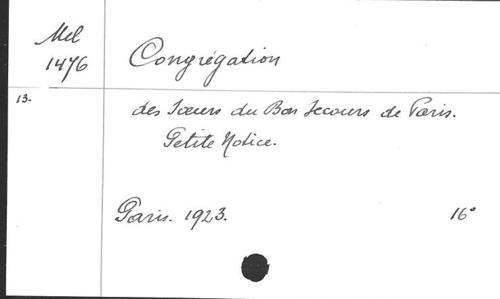 Mel
1476
Congrégation
13.
des Sœurs du Bon Secours de Paris.
Petite Notice.
Paris. 1923. 16°